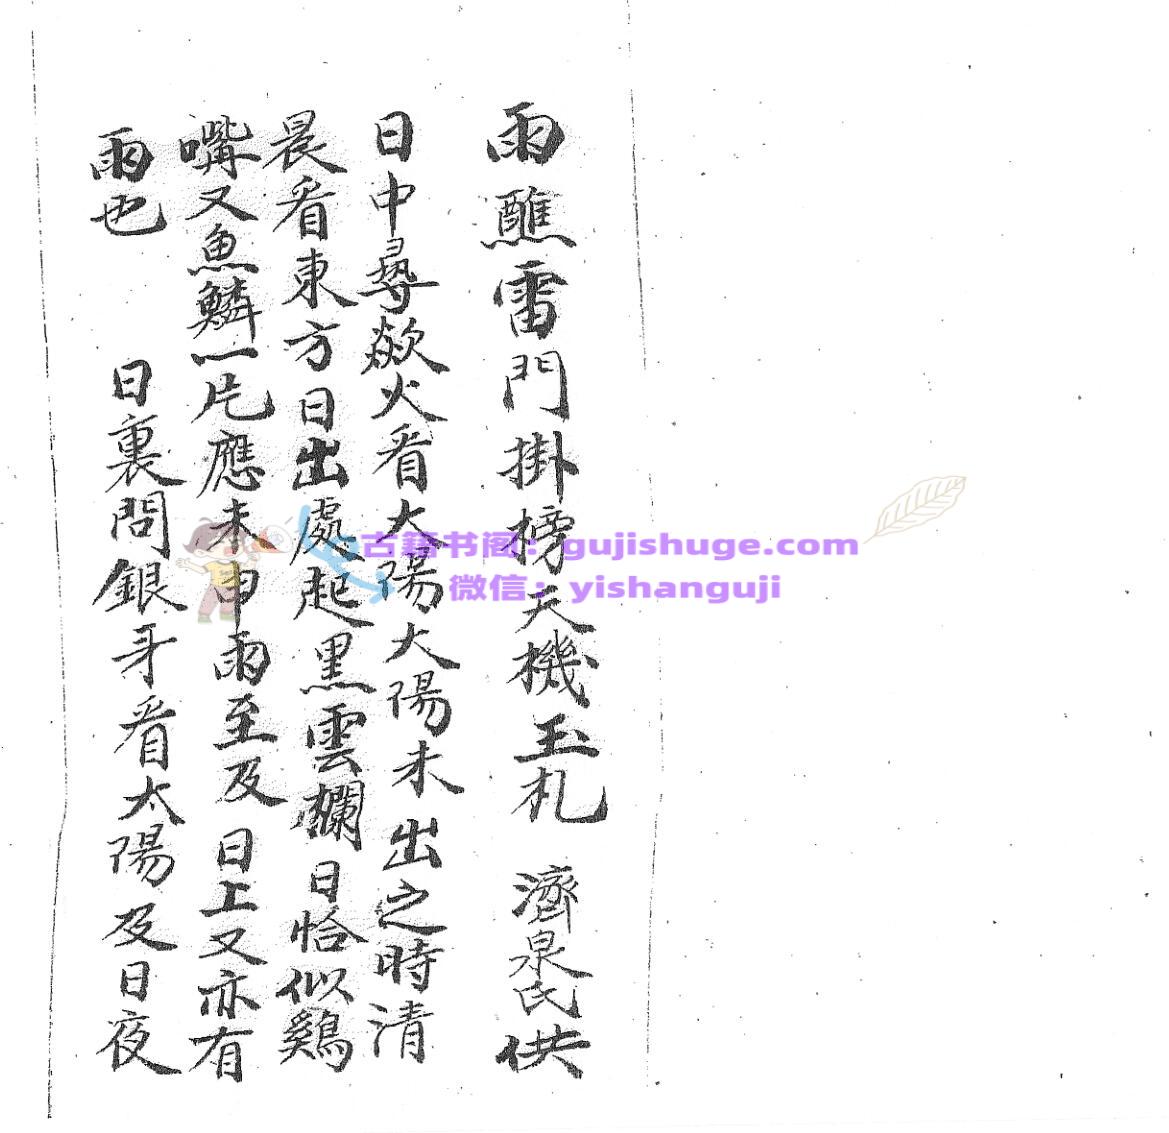 雨醮雷門掛榜天機玉札 濟泉氏供
日中尋歘火看太陽太陽未出之時清
晨看東方日出處起黑雲欄日恰似鷄
嘴又魚鱗一片應未申雨至及日上又亦有
雨也 日裏問銀牙看太陽及日夜
古籍书阁：gujishuge.com
微信：yishanguji